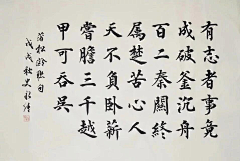 有志者事竟
成破釜沉舟
百二秦關終
属楚苦心人
天不負卧薪
嘗膽三千越
甲可吞吳
蒲松龄
戊戌秋史